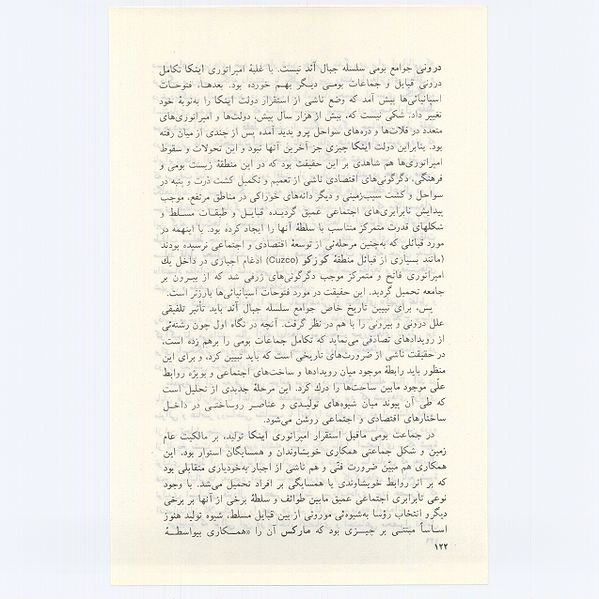 درونی جوامع بومی سلسله جبال آند نیست. با غلبهٔ امپراتوری اینکا تکامل
درونی قبایل و جماعات بومی دیگر بهم خورده بود. بعدها، فتوحات
اسپانیائی‌ها پیش آمد که وضع ناشی از استقرار دولت اینکا را به‌نوبهٔ خود
تغییر داد. شکی نیست که، بیش از هزار سال پیش، دولت‌ها و امپراتوری‌های
متعدد در فلات‌ها و دره‌های سواحل پرو پدید آمده پس از چندی از میان رفته
بود. بنابراین دولت اینکا چیزی جز آخرین آنها نبود و این تحولات و سقوط
امپراتوری‌ها هم شاهدی بر این حقیقت بود که در این منطقهٔ زیست بومی و
فرهنگی، دگرگونی‌های اقتصادی ناشی از تعمیم و تکمیل کشت ذرت و پنبه در
سواحل و کشت سیب‌زمینی و دیگر دانه‌های خوراکی در مناطق مرتفع، موجب
پیدایش نابرابری‌های اجتماعی عمیق گردیده قبایل و طبقات مسلط و
شکلهای قدرت متمرکز متناسب با سلطهٔ آنها را ایجاد کرده بود. با اینهمه در
مورد قبائلی که به‌چنین مرحله‌ئی از توسعهٔ اقتصادی و اجتماعی نرسیده بودند
(مانند بسیاری از قبائل منطقهٔ کوزکو (Cuzco) ادغام اجباری در داخل یك
امپراتوری فاتح و متمرکز موجب دگرگونی‌های ژرفی شد که از بیرون بر
جامعه تحمیل گردید. این حقیقت در مورد فتوحات اسپانیائی‌ها بارزتر است.
پس، برای تبیین تاریخ خاص جوامع سلسله جبال آند باید تأثیر تلفیقی
علل درونی و بیرونی را با هم در نظر گرفت. آنچه در نگاه اول چون رشته‌ئی
از رویدادهای تصادفی می‌نماید که تکامل جماعات بومی را برهم زده است،
در حقیقت ناشی از ضرورت‌های تاریخی است که باید تبیین کرد، و برای این
منظور باید رابطهٔ موجود میان رویدادها و ساخت‌های اجتماعی و بویژه روابط
علّی موجود مابین ساخت‌ها را درك کرد. این مرحلهٔ جدیدی از تحلیل است
که طی آن پیوند میان شیوه‌های تولیدی و عناصر روساختی در داخل
ساختارهای اقتصادی و اجتماعی روشن می‌شود.
در جماعت بومی ماقبل استقرار امپراتوری اینکا تولید، بر مالکیت عام
زمین و شکل جماعتی همکاری خویشاوندان و همسایگان استوار بود. این
همکاری هم مبیّن ضرورت فنّی و هم ناشی از اجبار به‌خودیاری متقابلی بود
که بر اثر روابط خویشاوندی یا همسایگی بر افراد تحمیل می‌شد. با وجود
نوعی نابرابری اجتماعی عمیق مابین طوائف و سلطهٔ برخی از آنها بر برخی
دیگر و انتخاب رؤسا به‌شیوه‌ئی موروثی از بین قبایل مسلط، شیوه تولید هنوز
اساساً مبتنی بر چیزی بود که مارکس آن را «همکاری بیواسطهٔ
۱۲۲